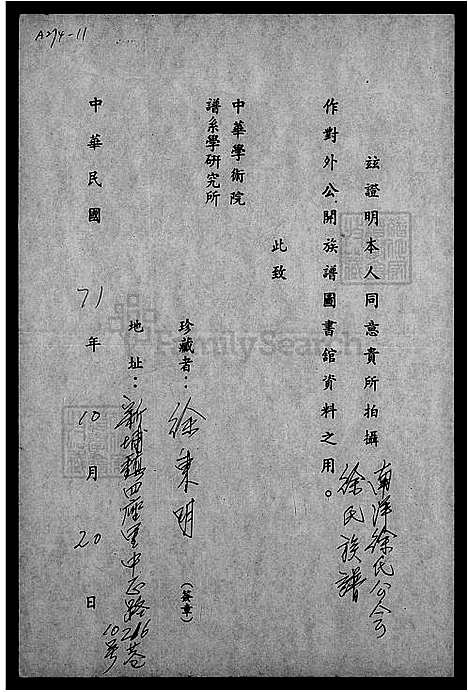 A274-11
茲證明本人同意貴所拍攝 南洋徐氏公會
徐氏族譜
作對外公開族譜圖書館資料之用。
此致
中華學術院
譜系學研究所
珍藏者：徐東明（簽章）
地址：新埔鎮四座里中正路
216巷
10號
中華民國71年10月20日
FamilySearch